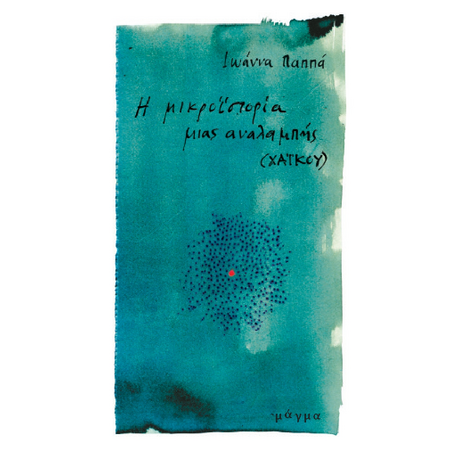 Ιωάννα Παππά
Η μικροϊστορία
μιας αναλαμπής
(ΧΑΪΚΟΥ)
μάγμα